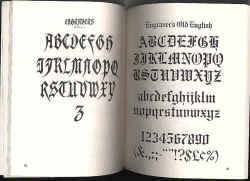 ABCDEFGH
IJKLMNOPQ
RSTUVWXY
Z
Engraver's Old English
ABCDEFGHI
JKLMNOPQR
STUVWXYZ
abcdefghijklm
nopqrstuvwxyz
1234567890